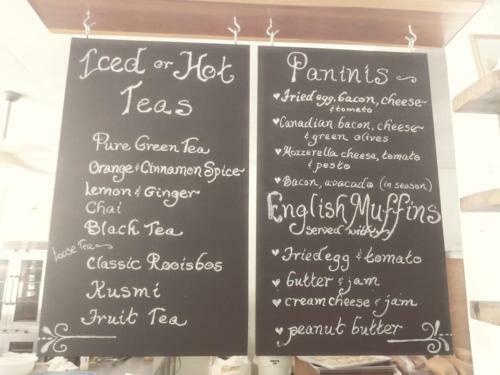 Iced or Hot
Teas
Pure Green Tea
Orange & Cinnamon Spice
Lemon & Ginger
Chai
Black Tea
loose Tea
Classic Rooisbos
Kusmi
Fruit Tea
Paninis
Fried egg, bacon, cheese
& tomato
Canadian bacon, cheese
& green olives
Mozzerella cheese, tomato
& pesto
Bacon, avocado (in season)
English Muffins
served with
Fried egg & tomato
butter & jam
cream cheese & jam
peanut butter